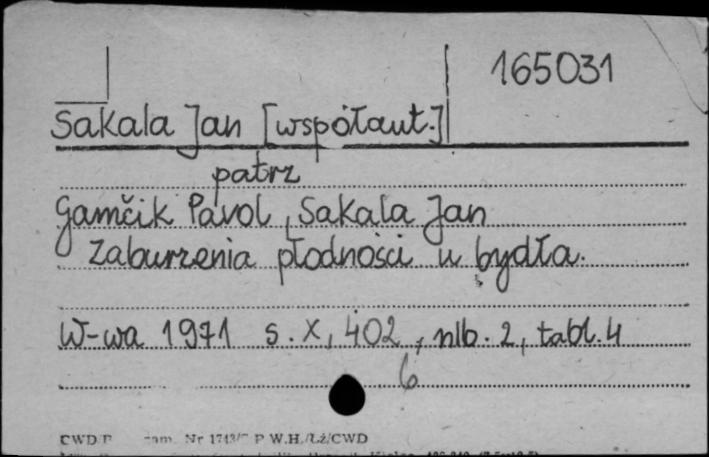 165031
Sakala Jan [współaut.]
patrz
Gamčik Pavol, Sakala Jan
Zaburzenia płodności u bydła.
W-wa 1971 s. X, 402, nlb. 2, tabl. 4
6
zam. Nr 1713/ P W.H./Łż/CWD